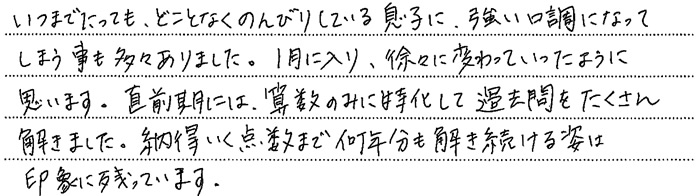 いつまでたっても、どことなくのんびりしている息子に、強い口調になって
しまう事も多々ありました。1月に入り、徐々に変わっていったように
思います。直前期には、算数のみに特化して過去問をたくさん
解きました。納得いく点数まで何年分も解き続ける姿は
印象に残っています。